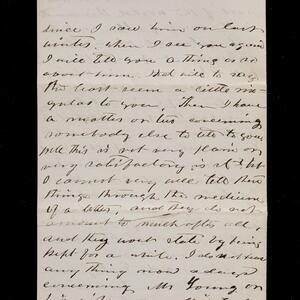 since I saw him on last
winter, when I see you again
I will tell you a thing or so
about him. that will to say
the least seem a little sin
gular to you. Then I have
a matter or two concerning
somebody else to tell to you
this is not very plain or
very satisfactory is it but
I cannot very well tell these
things through the medium
of a letter, and they do not
amount to much after all,
and they wont stale by being
kept for a while. I do not hear
any thing now a days
concerning Mr Young or